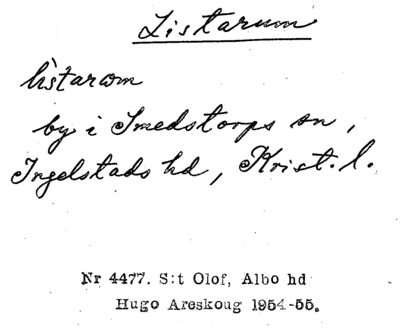 Listarum
lìstarom
by i Smedstorps sn,
Ingelstads hd, Krist. l.
Nr 4477. S:t Olof, Albo hd
Hugo Areskoug 1954-55.